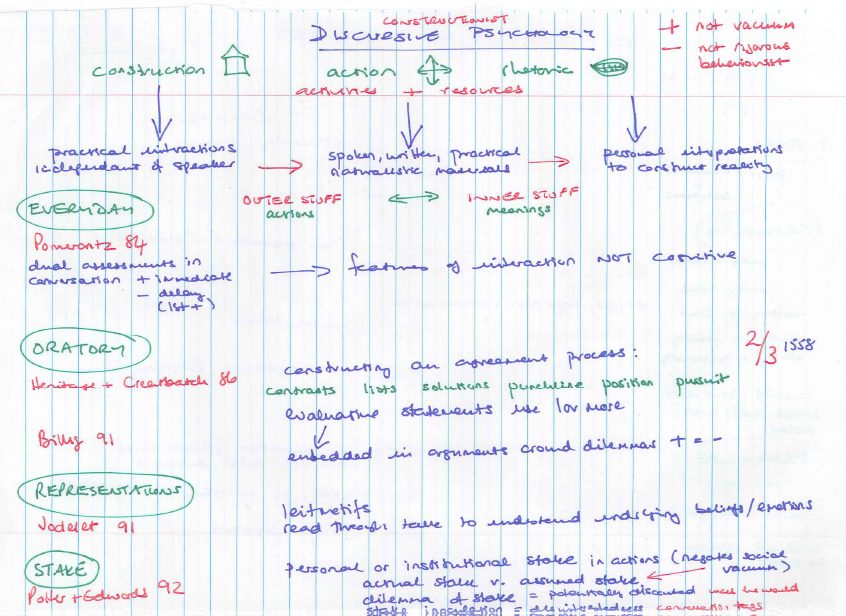 CONSTRUCTIONIST
DISCURSIVE PSYCHOLOGY
+ not vacuum
- not rigorous
behaviourist
construction
action
rhetoric
activities + resources
practical interactions
independant of speaker
spoken, written, practical
naturalistic materials
personal interpretations
to construct reality
OUTER STUFF
actions
INNER STUFF
meanings
EVERYDAY
Pomerantz 84
dual assessments in
conversation + immediate
- delay
(1st +)
features of interaction NOT cognitive
ORATORY
2/3 1558
Heritage + Greatbatch 86
constructing an agreement process:
contrasts lists solutions punchline position pursuit
evaluative statements use 1 or more
Billig 91
embedded in arguments around dilemmas + = -
REPRESENTATIONS
Jodelet 91
leitmotifs
read through talk to understand underlying beliefs/emotions
STAKE
Potter + Edwards 92
personal or institutional stake in actions (negates social
vacuum)
actual stake v. assumed stake
dilemma of stake = potentially discounted well he would
stake inoculation =